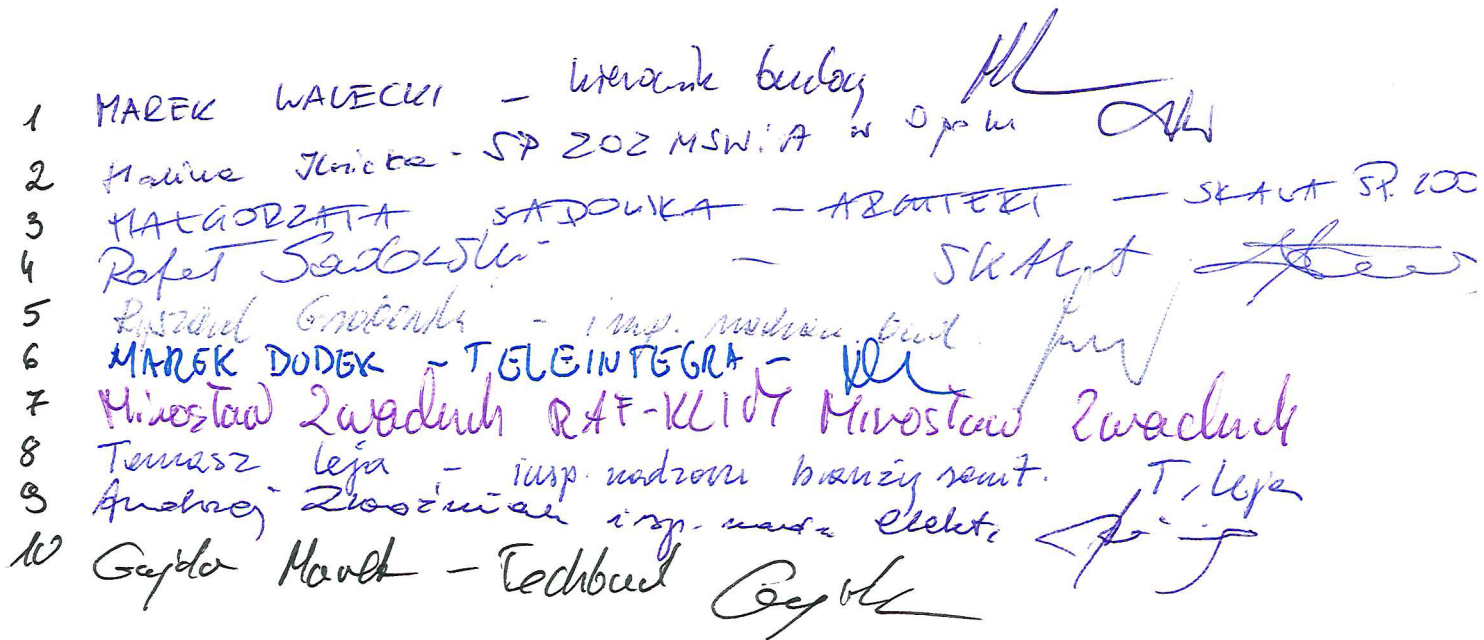 1 MAREK WALECKI - kierownik budowy
2 Halina - SP ZOZ MSWiA w Opolu
3 MAŁGORZATA SADOWSKA - ARCHITEKT - SKALA SP. ZOO
4 Rafał Sadowski - SKALA
5 Ryszard - insp. nadzoru bud.
6 MAREK DUDEK - TELEINTEGRA -
7 Mirosław Zwadluch RAF-KLIM Mirosław Zwadluch
8 Tomasz Leja - insp. nadzoru branży sanit. T. Leja
9 Andrzej insp. nadz. elekt.
10 Gajda Marek - Techbud Gajda